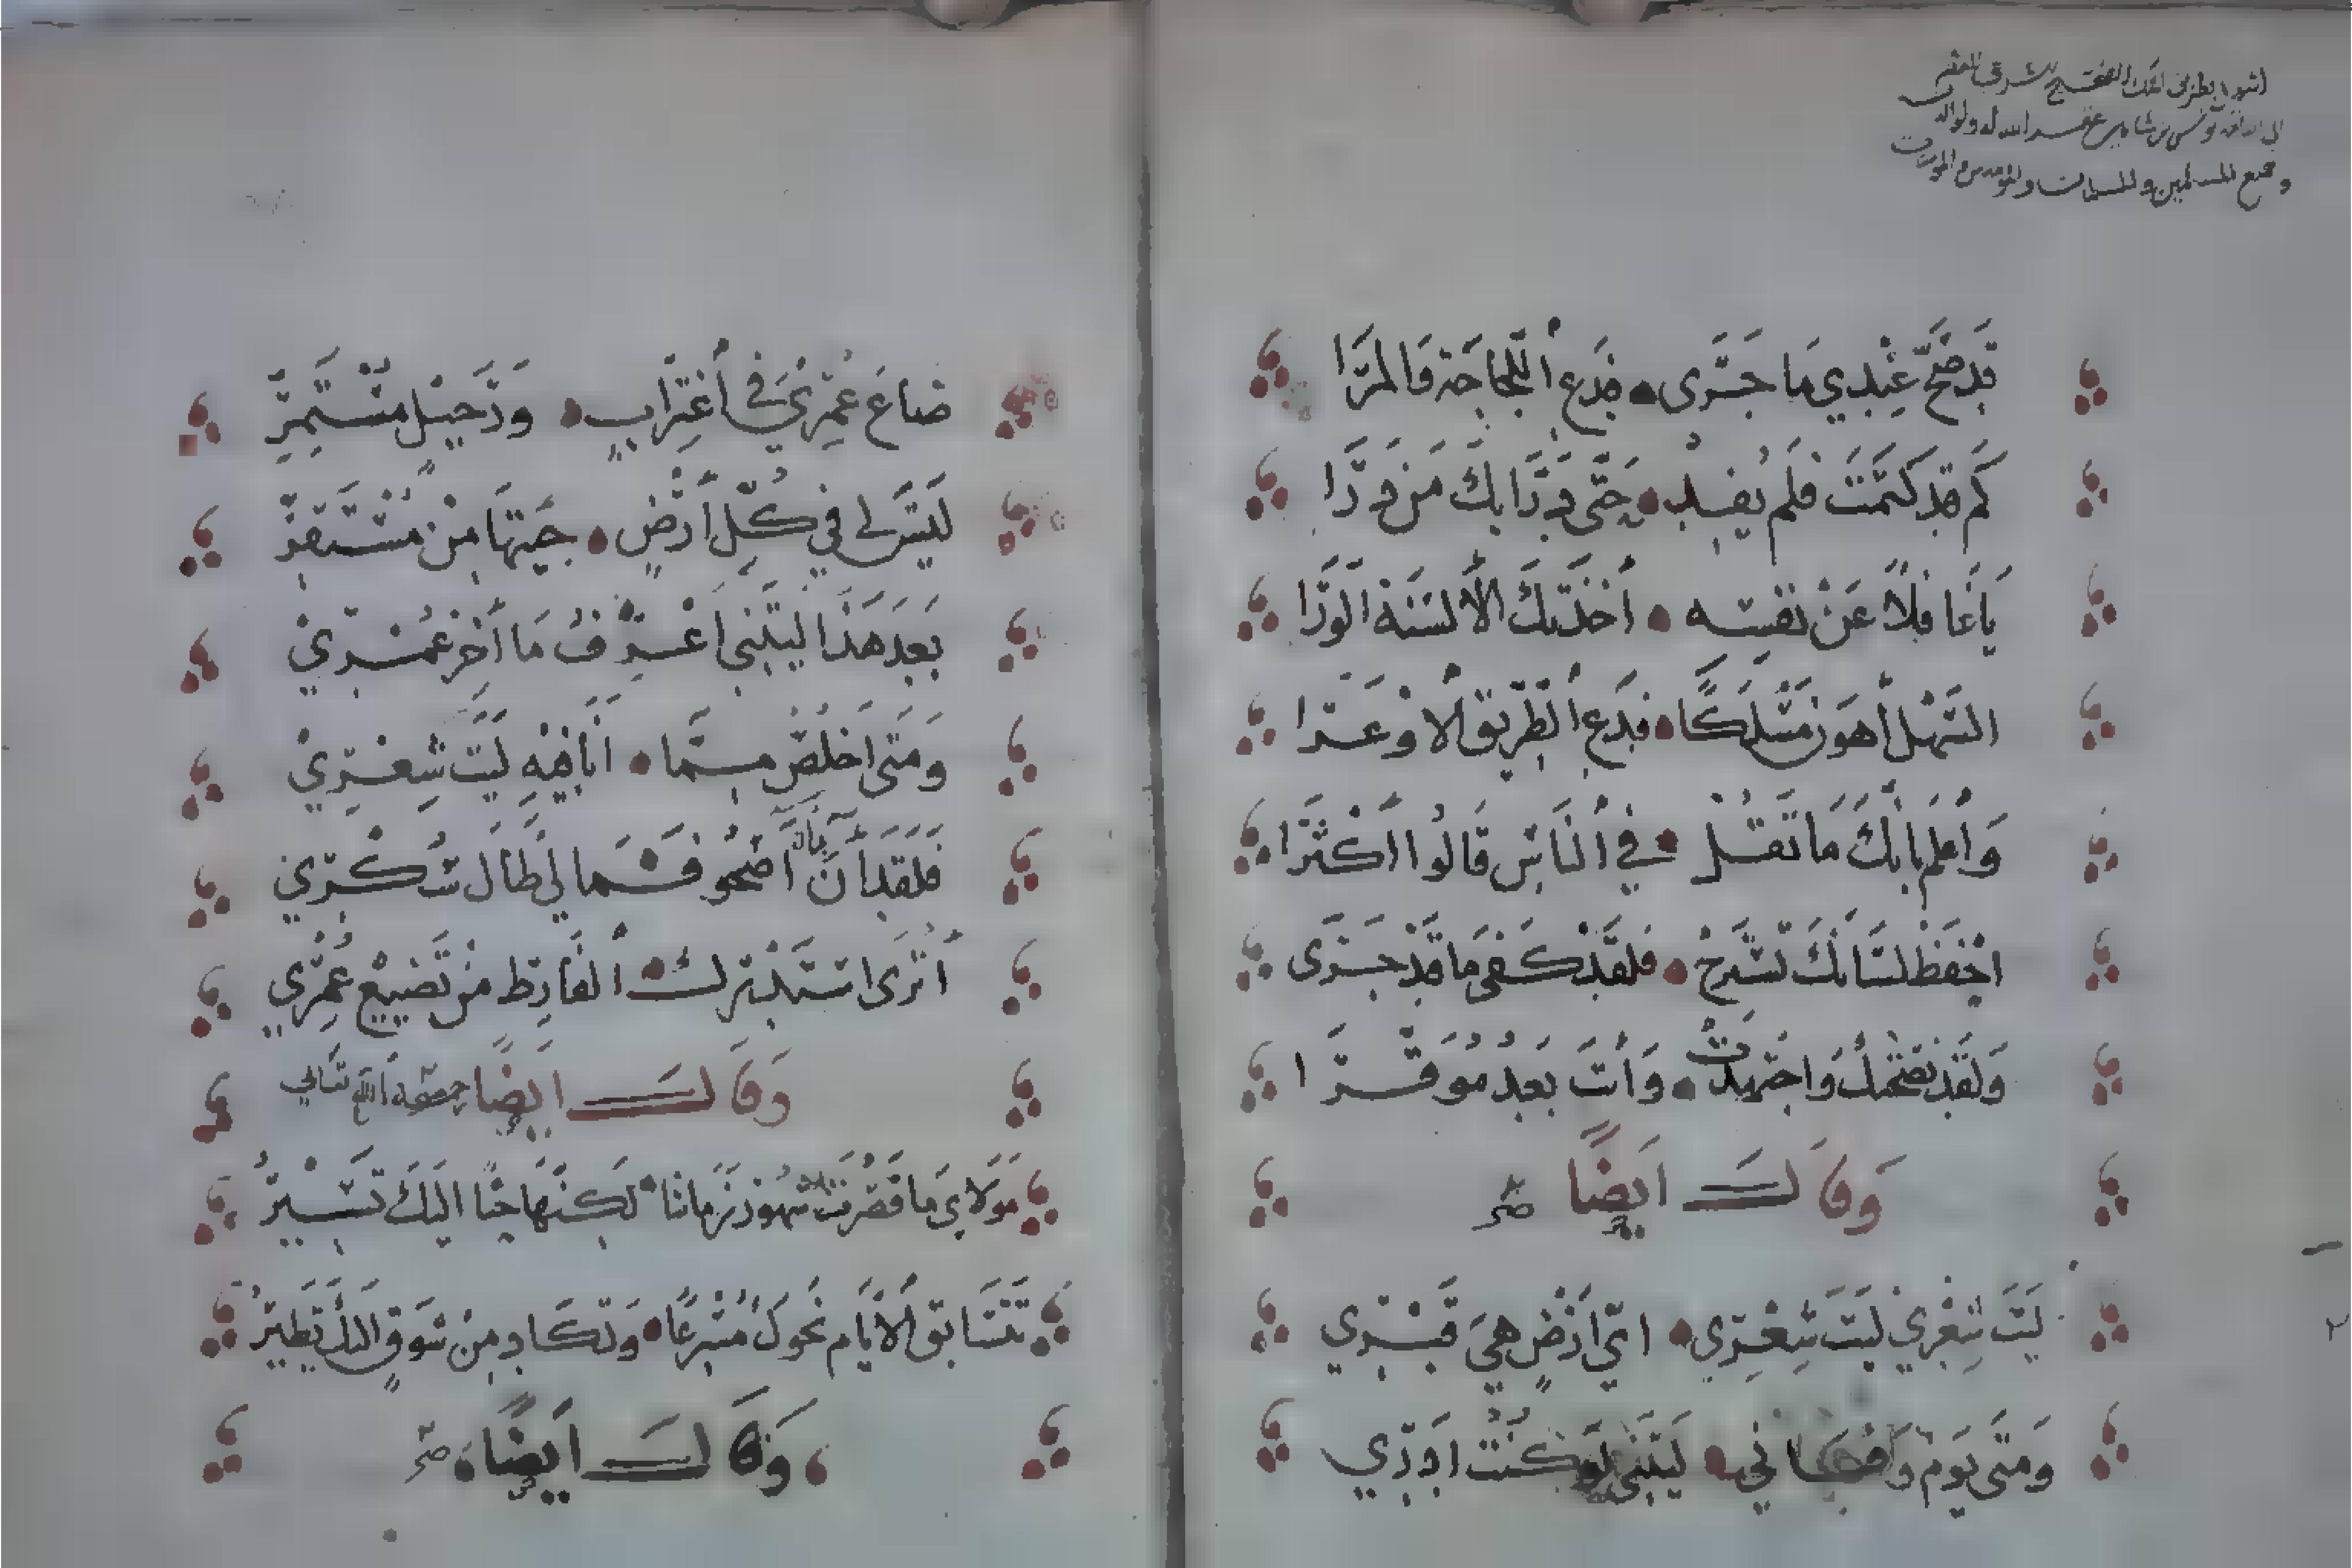 وجميع المسلمين والمسلمات
قد صح عندي ما جرى فدع اللجاجة فالمرا
كم قد كتمت فلم يفد حتى درى بك من درا
يا غافلا عن نفسه أخذتك الألسنة الورا
السهل أهون مسلكا فدع الطريق الأوعرا
واعلم بانك ما تقل في الناس قالوا اكثرا
احفظ لسانك تسترح فلقد كفى ما قد جرى
ولقد نصحتك واجتهدت وأنت بعد موقرا
وقال ايضا
ليت شعري ليت شعري اي أرض هي قبري
ومتى يوم وفاتي ليتني لو كنت ادري
ضاع عمري في أغتراب ورحيل مستمر
ليس لي في كل أرض جيتها من مستقر
بعد هذا ليتني اعرف ما أخر عمري
ومتى اخلص مما انا فيه ليت شعري
فلقد آن بان اصحو فما لي طال سكري
أترى استدرك الفارط من تضييع عمري
وقال ايضا الله تعالي
مولاي ما قصرت شهور زماننا لكنها حثا اليك تسير
تتسابق الأيام نحوك مسرعا وتكاد من شوق اليك تطير
وقال ايضا